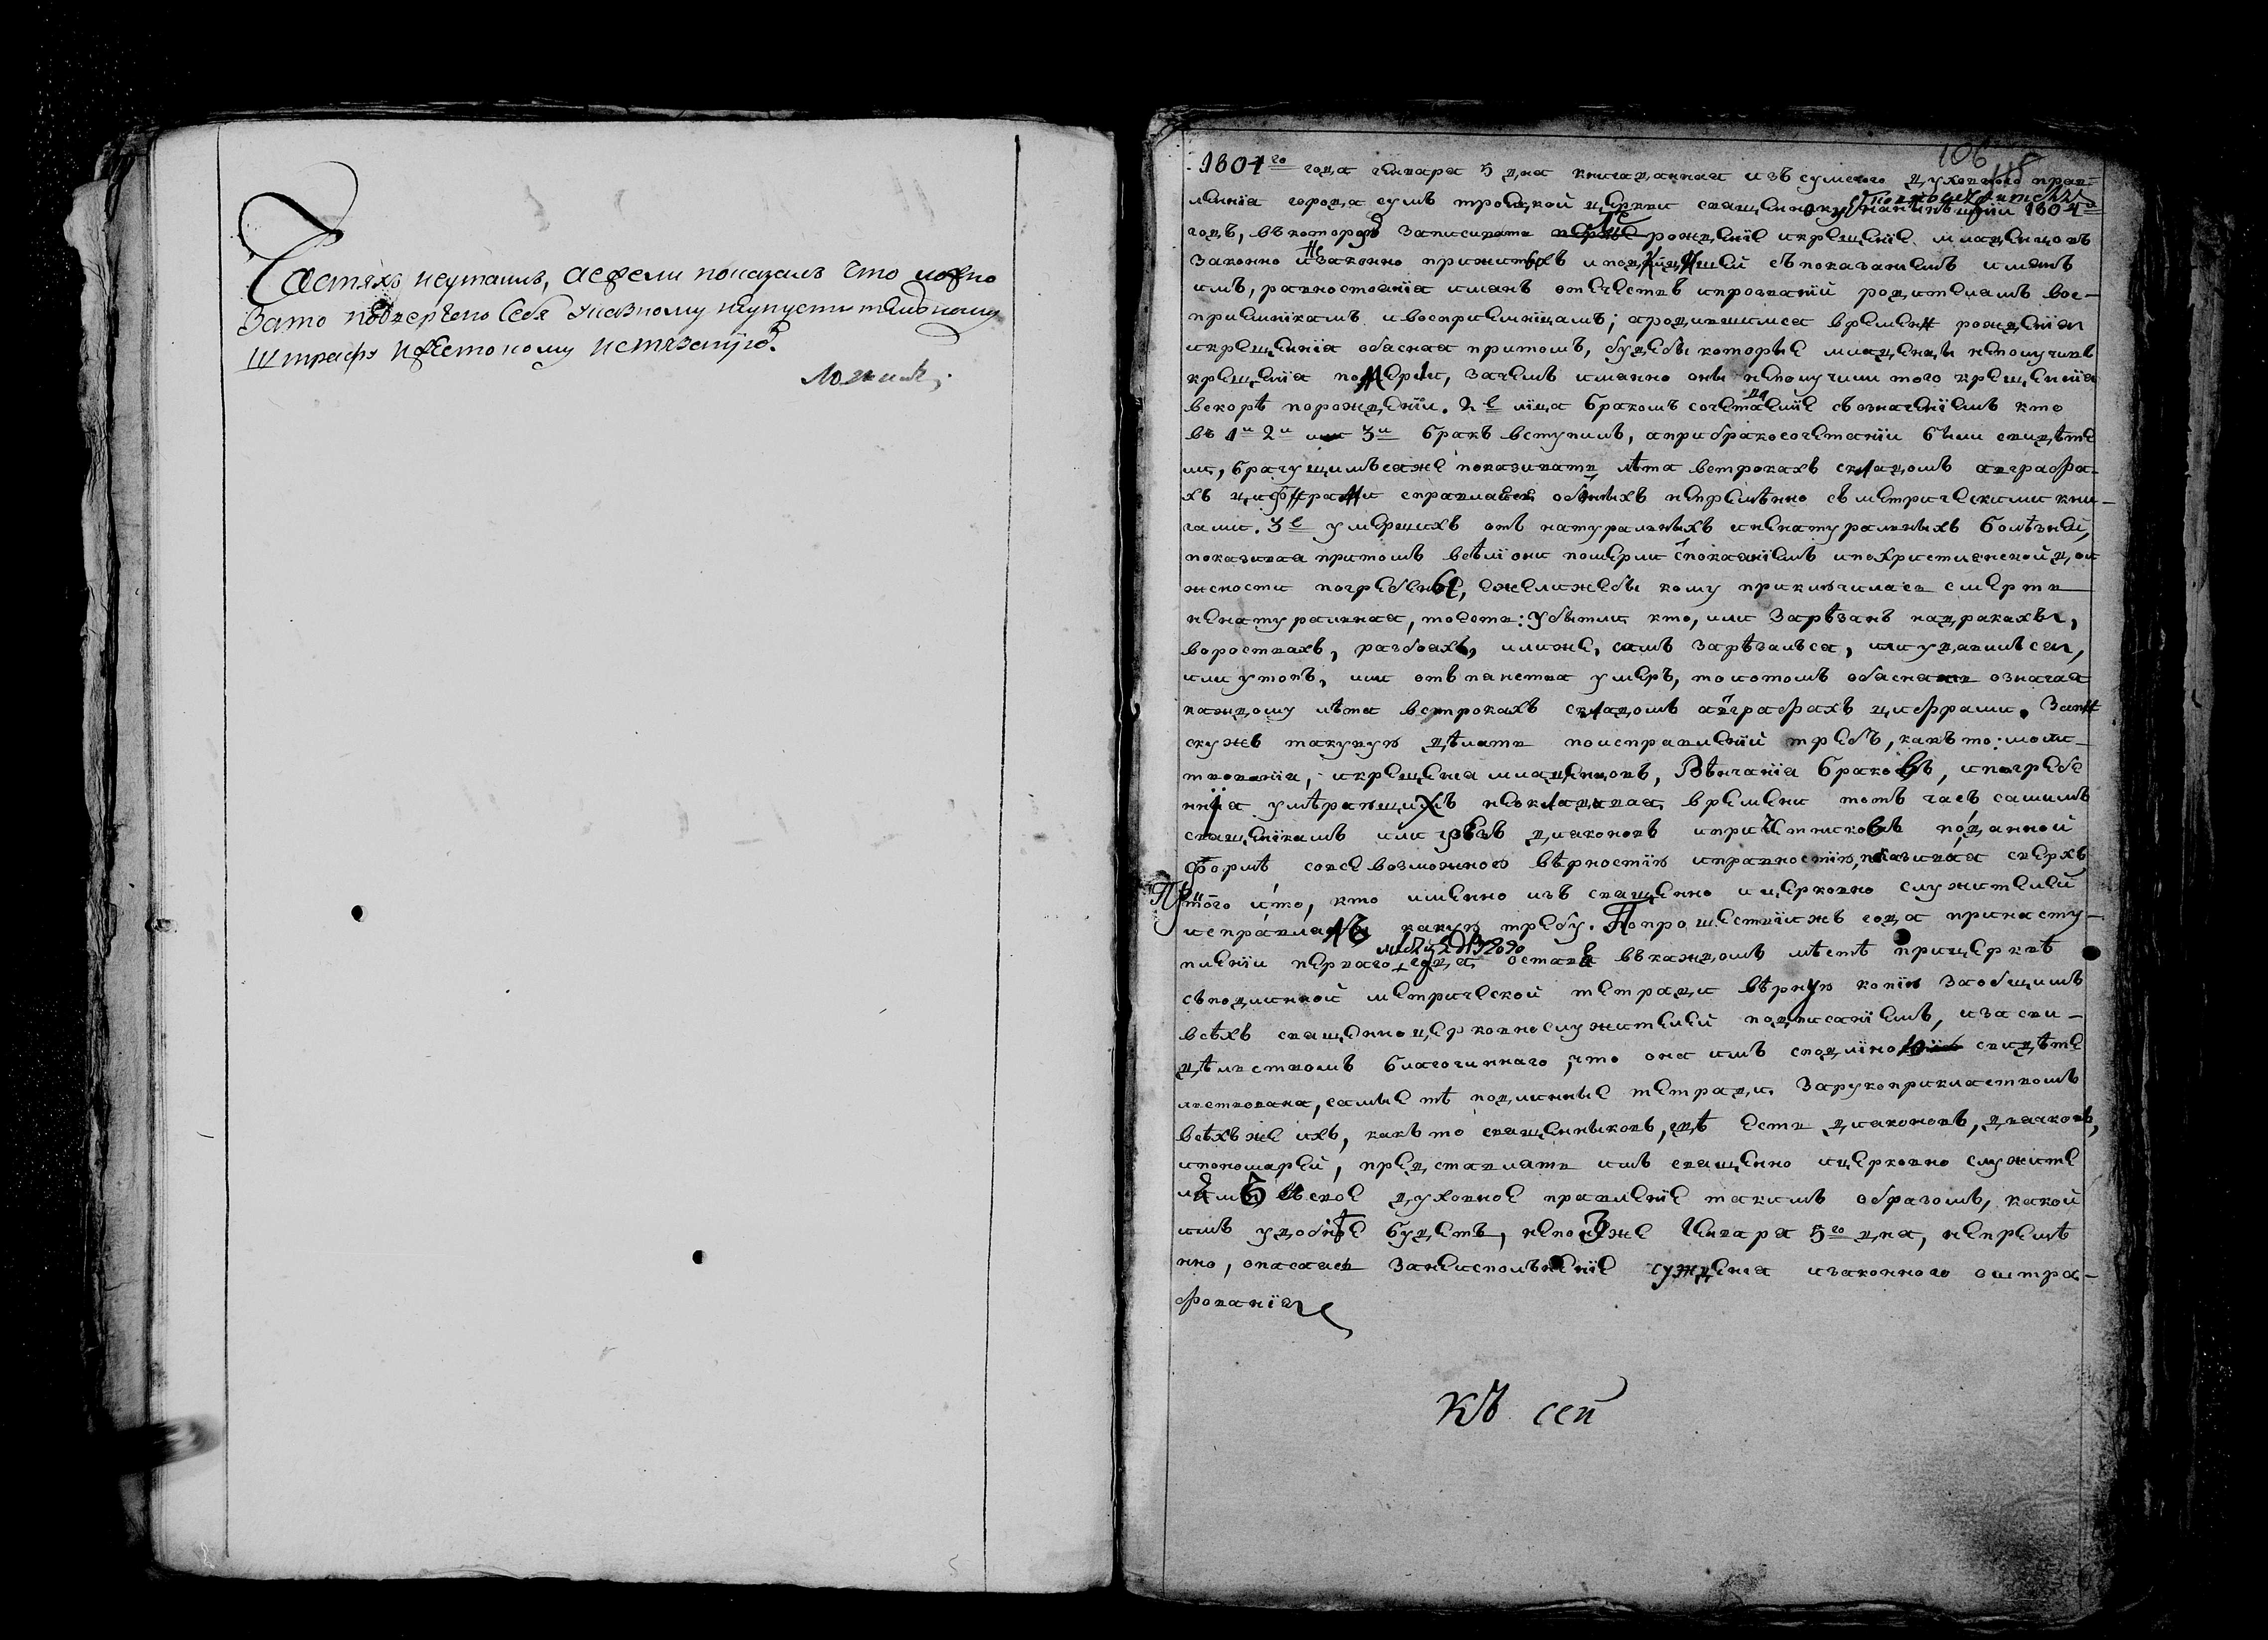 Тостяхъ неутаилъ, аежели показалъ что ложно
Зато подвергаю себя указному неупустительному
Штрафу ижестокому истязанїю.
106
1804го года генваря 5 дня книга данная изъ сумского духовного прав-
ленїя города сумъ троицкой церкви священнику 1804й
годъ, въкоторую записивать рожденїе икрещенїе младенцовъ
законно инезаконно прижитыхъ съпоказанїемъ именъ
имъ, равностоянїя именъ отечествъ ипрозванїй родителямъ вос-
прїемникамъ ивоспрїемницамъ; ародившимся времени рожденїя
икрещенїя обясняя притомъ, будебы которые младенцы неполучивъ
крещенїя померли, зачемъ именно оны неполучили того крещенїя
вскорѣ порожденїи. 2е лица бракомъ сочетаемїе съозначенїемъ кто
въ 1й 2й или 3й бракъ вступилъ, априбракосочетанїи были свидѣте
ли, брачущимъсяже показивать лѣта встрокахъ складомъ авграфа-
хъ цифрами справляясь обоныхъ непремѣнно съметрическими кни-
гами. 3е умершихъ отъ натуральныхъ иненатуральныхъ болѣзней,
показивая притомъ всѣли они померли споказнїемъ ипохристиянской дол
жности погребены, ежелижебы кому приключилась смерть
ненатуральная, тоесть: убытли кто, или зарѣзанъ надракахъ,
воровствахъ, разбояхъ, илиже, самъ зарѣзался, или удавился,
или утопъ, или отъ пянства умеръ, то ипотомъ обяснять означая
каждому лѣта встрокахъ складомъ авграфахъ цифрами. Запи
скужъ такую дѣлать поисправленїи требъ, какъ то: моли-
твованїя, икрещенїя младенцовъ, Вѣнчанїя браковъ, ипогребе
нїя умѣрающихъ невкладивая времени тотъ часъ самимъ
священикамъ или чрезъ дияконовъ ипричетниковъ поданной
формѣ совсевозможною вѣрностїю иправностїю, показивая сверхъ
того ито, кто именно изъ священно ицерковно служителей
исправлялъ какую требу. Попрошествїижъ года принасту-
пленїи первого оставя въкаждомъ мѣстѣ прицерквѣ
съподлинной метрической тетради вѣрную копїю заобщимъ
всѣхъ священноцерковнослужителей подписанїемъ, иза сви-
дѣльствомъ благочинного, что она имъ сподлиною свидѣте
льствована, самые тѣ подлинные тетради. Зарукоприкластвомъ
всѣхъже ихъ, какъ то священныковъ, гдѣ есть дияконовъ, дьячковъ,
ипономарей, представлять имъ священно ицерковно служите
лямъ въ свое духовное правленїе такимъ образомъ, какой
имъ удобнѣе будетъ, непозже генваря 5го дня, непремѣ
нно, опасаясь занеисполненїе сужденїя изаконного оштра-
фованїя
Къ сей